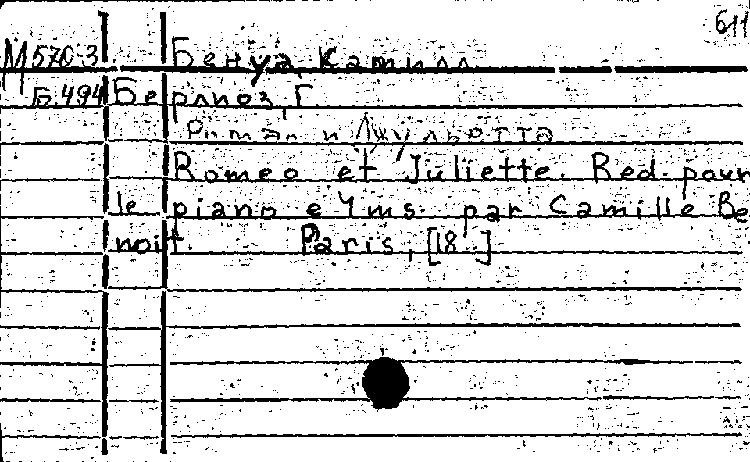 611
М 570-3 Бенуа, Камилл
Б.494 Берлиоз, Г
Ромео и Джульетта
Romeo et Juliette. Red. pour
le piano e 4 ms. par Camille Be
noit. Paris, [18..]